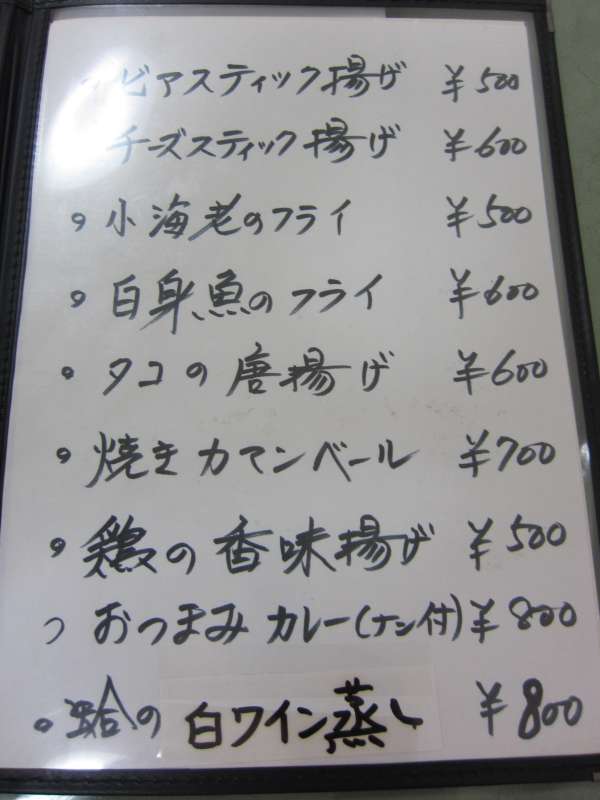 ビアスティック揚げ ¥500
チーズスティック揚げ ¥600
・小海老のフライ ¥500
・白身魚のフライ ¥600
・タコの唐揚げ ¥600
・焼きカマンベール ¥700
・鶏の香味揚げ ¥500
・おつまみカレー(ナン付) ¥800
・蛤の白ワイン蒸し ¥800